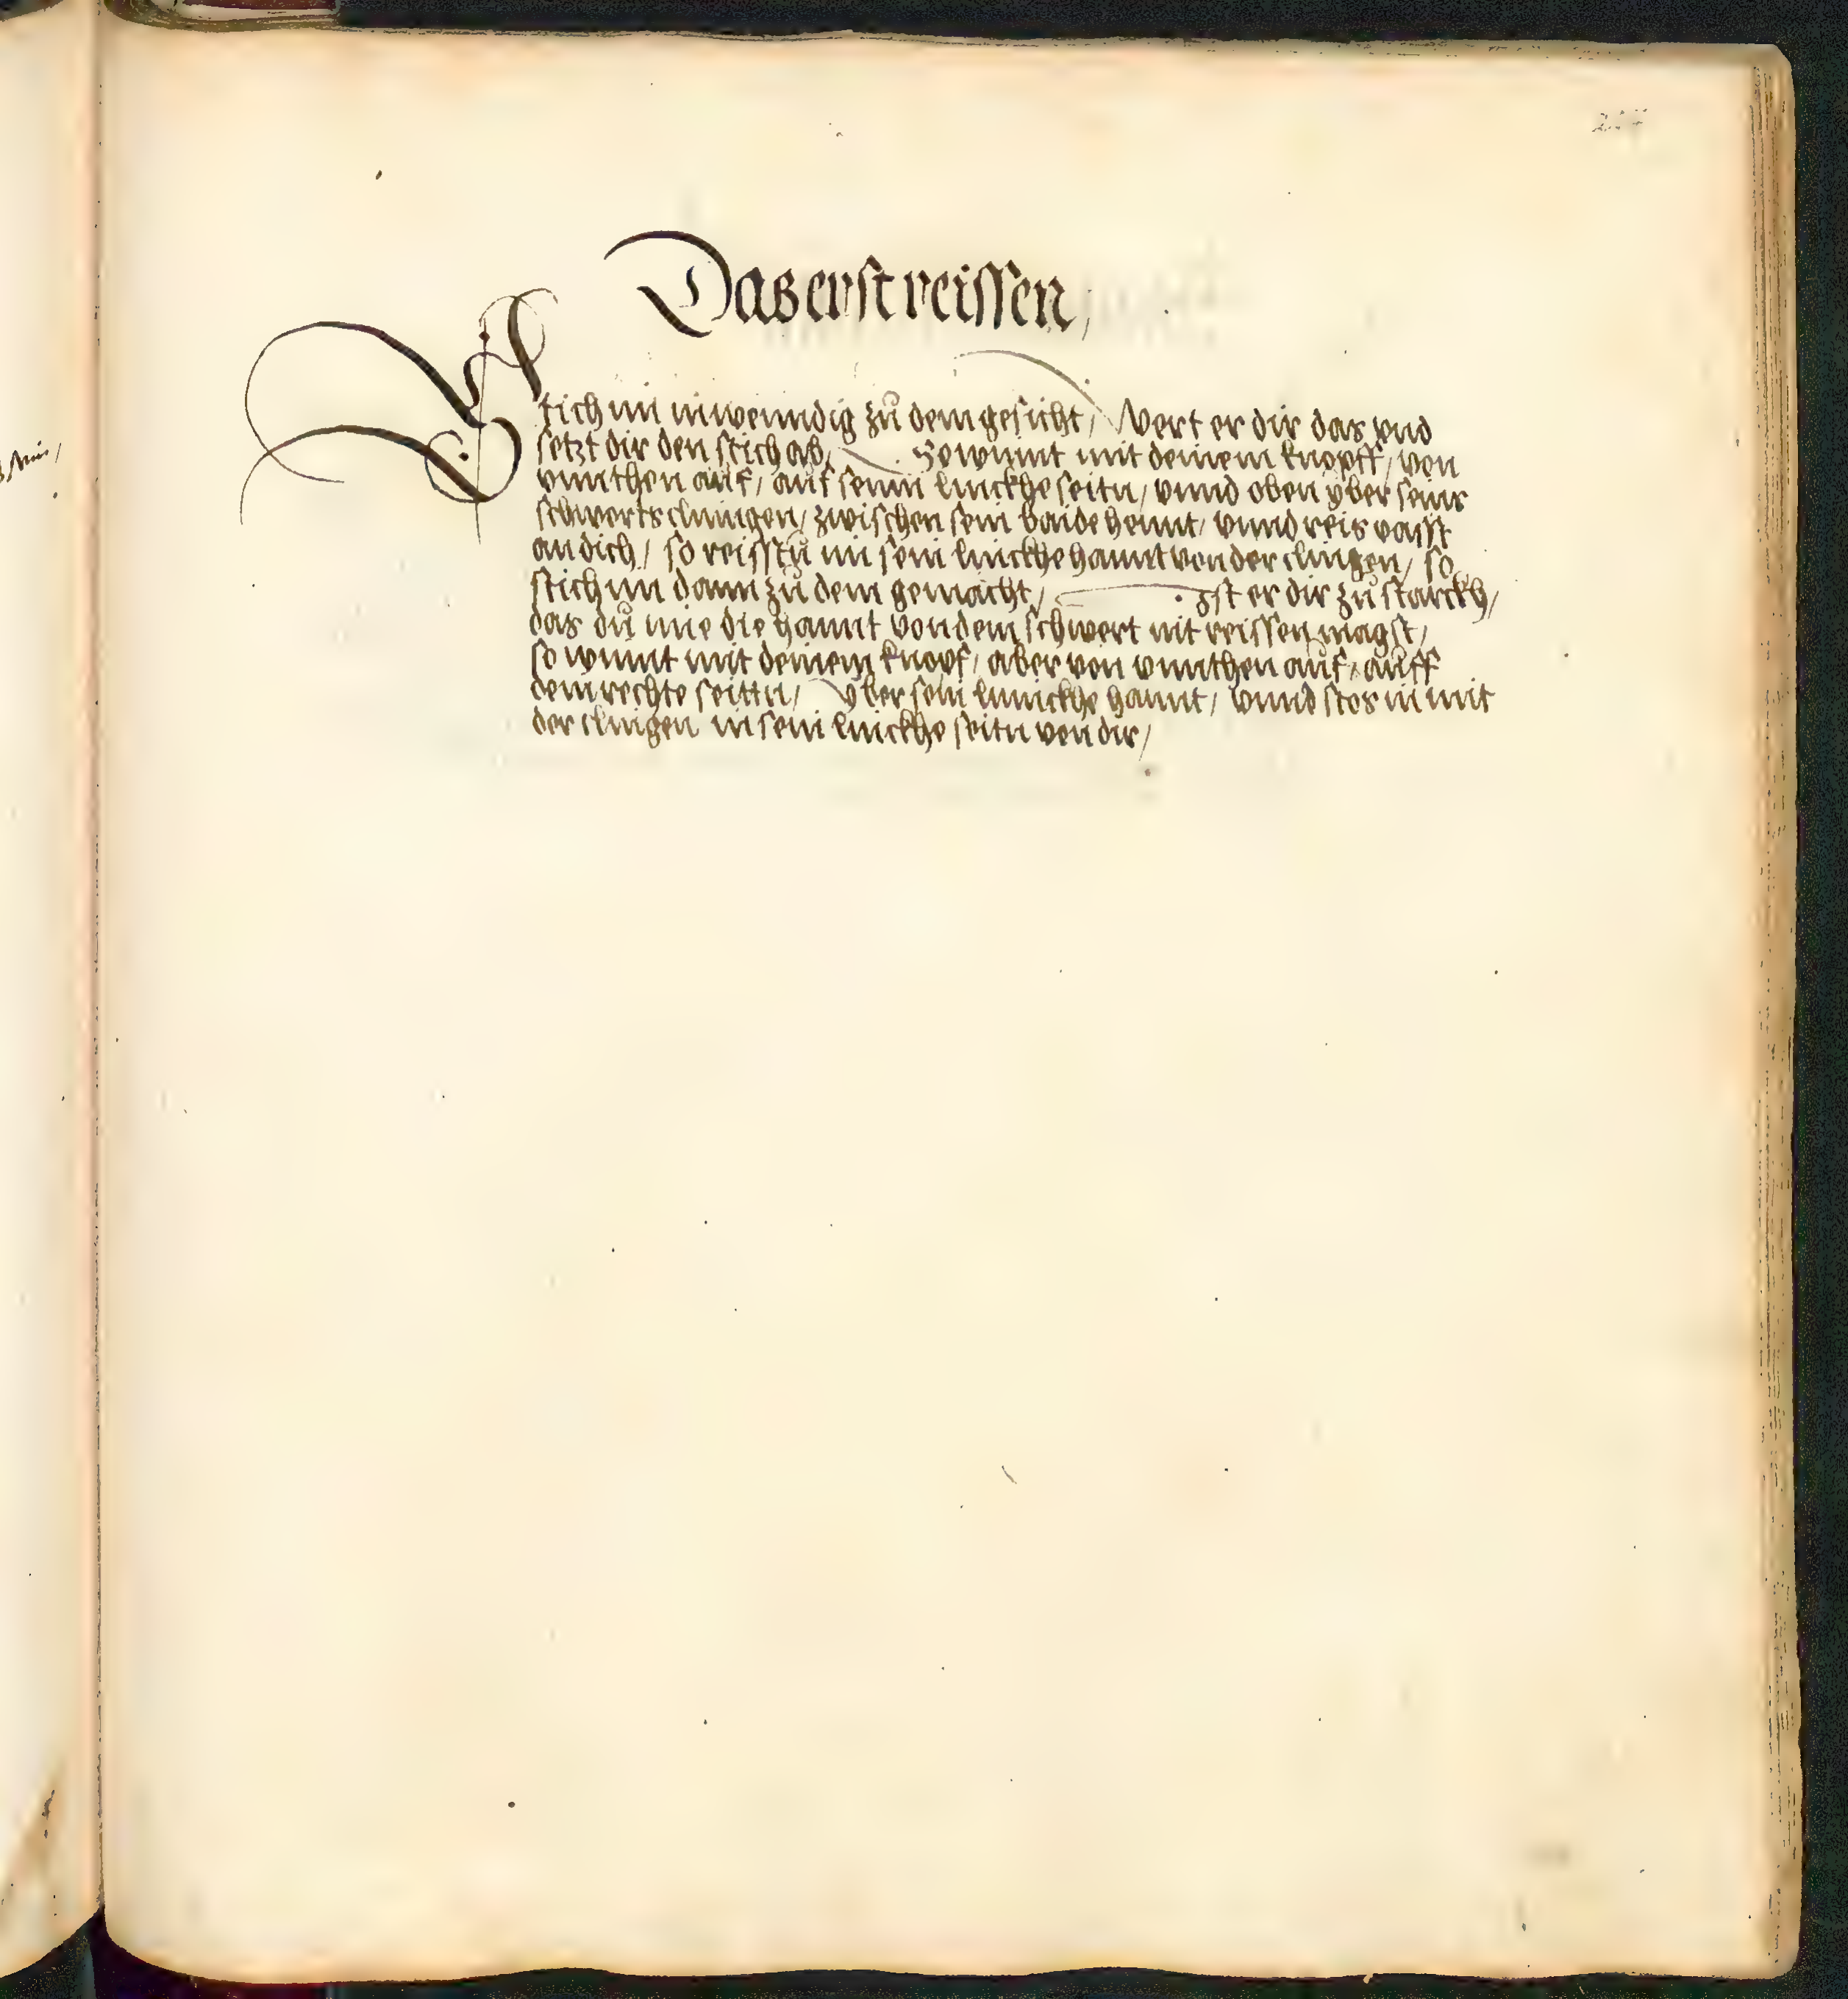 Das erst reissen,
Stich im inwenndig zů dem gesicht / Wert er dir das vnd
setzt dir den stich ab, So winnt mit deinem knopff, von
vnnthen auf, auf seinn linckhe seitn, vnnd oben yber seins
schwerts clingen, zwischen sein baide hennt, vnnd reis vasst
an dich, so reisstu im sein linckhe hannt von der clingen, so
stich im dann zů dem gemächt, Ist er dir zů starckh,
das dů ime die hannt von dem schwert nit reissen magst,
so winnt mit deinem knopf, aber von vnnthen auf, auff
dem rechte seittn, yber sein linnckhe hannt, vnnd stos in mit
der clingen in sein linckhe seitn von dir,